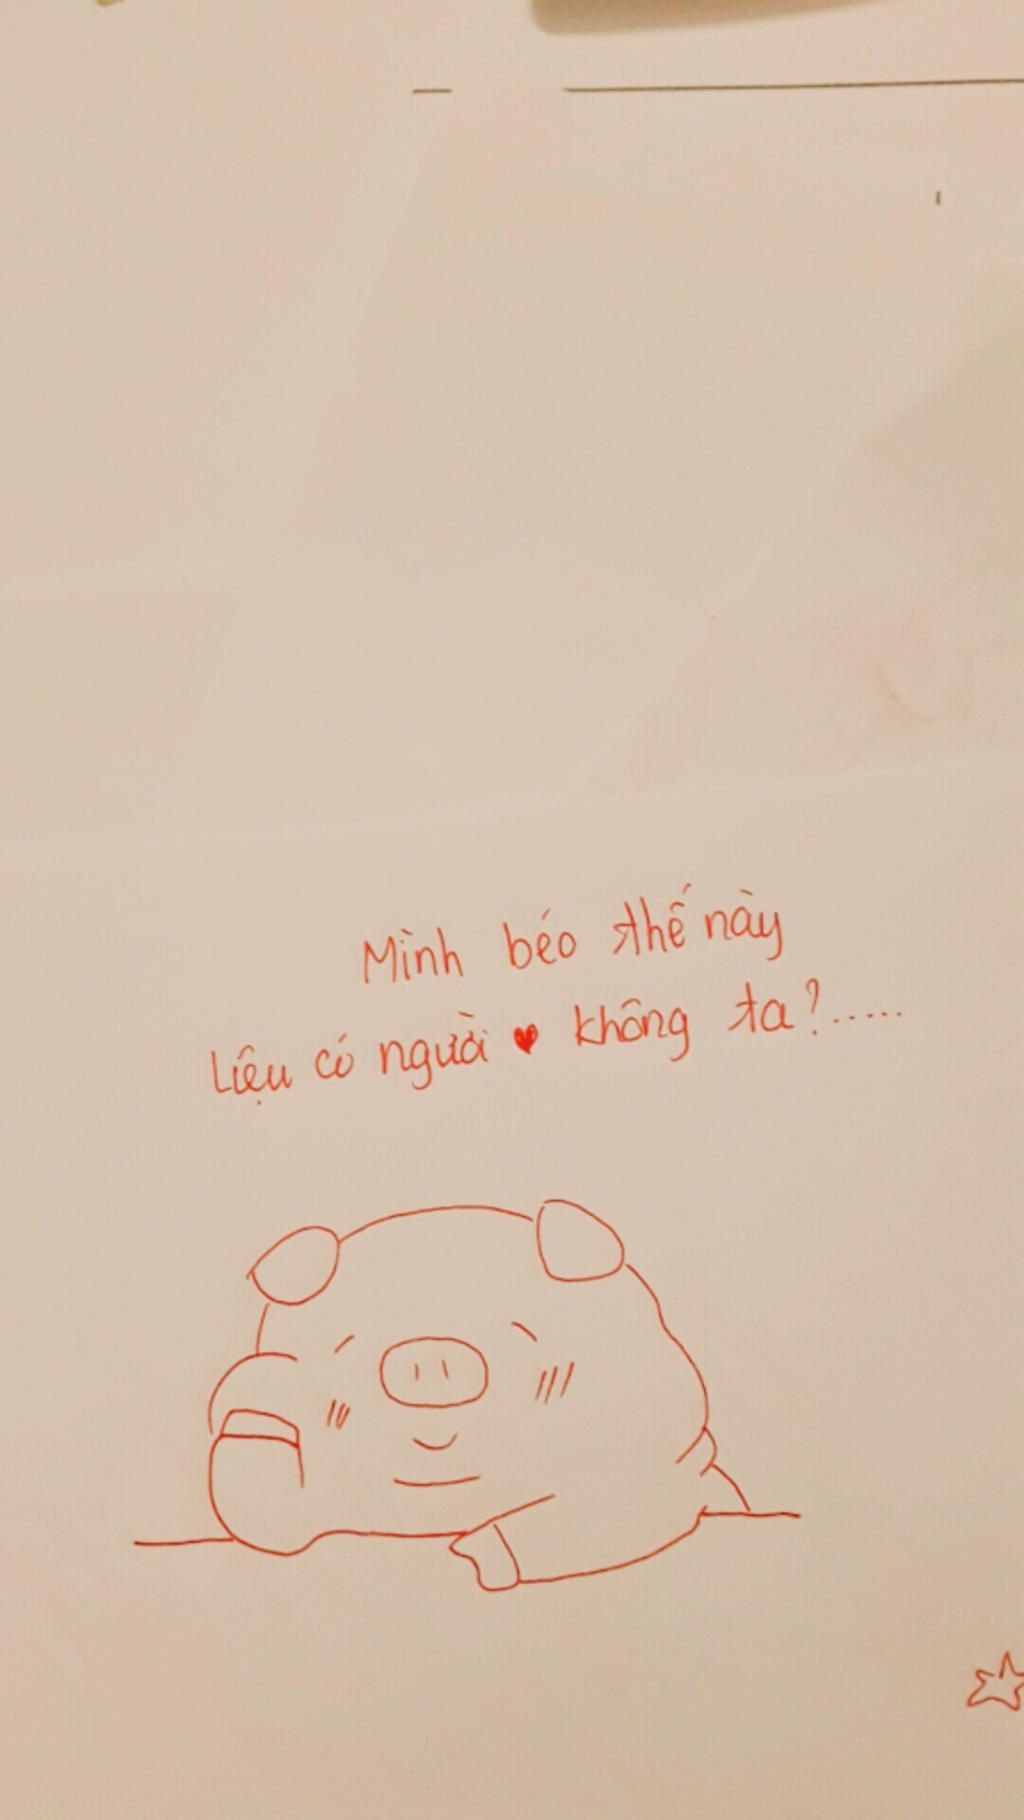 Mình béo thế này
Liệu có người ♥ không ta?.....